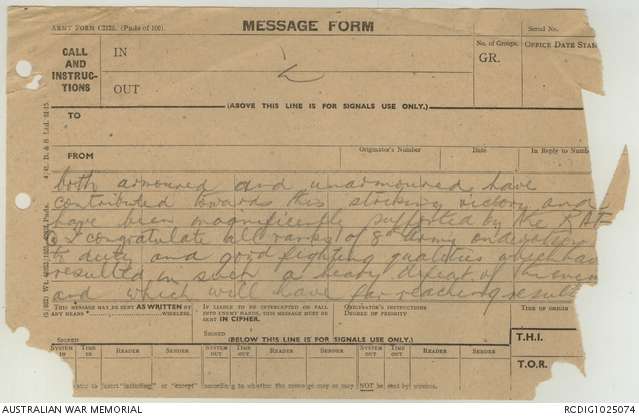 ARMY FORM C2128. (Pads of 100).
MESSAGE FORM
Serial No.
CALL AND INSTRUC- TIONS
IN
OUT
No. of Groups.
GR.
OFFICE DATE STAM
(ABOVE THIS LINE IS FOR SIGNALS USE ONLY.)
TO
FROM
Originator's Number
Date
In Reply to Numb
both armoured and unarmoured have
contributed towards this striking victory and
have been magnificently supported by the RAF
I congratulate all ranks of 8 Army on devotion
to duty and good fighting qualities which have
resulted in such a heavy defeat of the enem
and which will have far reaching results
THIS MESSAGE MAY BE SENT AS WRITTEN BY
ANY MEANS WIRELESS.
SIGNED
IF LIABLE TO BE INTERCEPTED OR FALL
INTO ENEMY HANDS, THIS MESSAGE MUST BE
SENT IN CIPHER.
SIGNED
ORIGINATOR'S INSTRUCTIONS
DEGREE OF PRIORITY
TIME OF ORIGIN
(BELOW THIS LINE IS FOR SIGNALS USE ONLY.)
T.H.I.
T.O.R.
SYSTEM IN
TIME IN
READER
SENDER
SYSTEM OUT
TIME OUT
READER
SENDER
SYSTEM OUT
TIME OUT
READER
SENDER
to insert "including," or "except" according to whether the message may or may NOT be sent by wireless.
AUSTRALIAN WAR MEMORIAL
RCDIG1025074